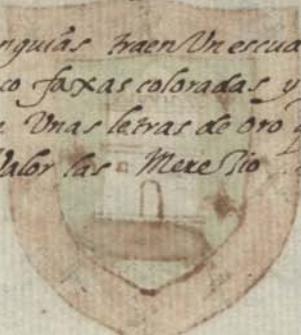 nguias traen Un escua
co faxas coloradas y
Unas letras de oro
Valor las Mere